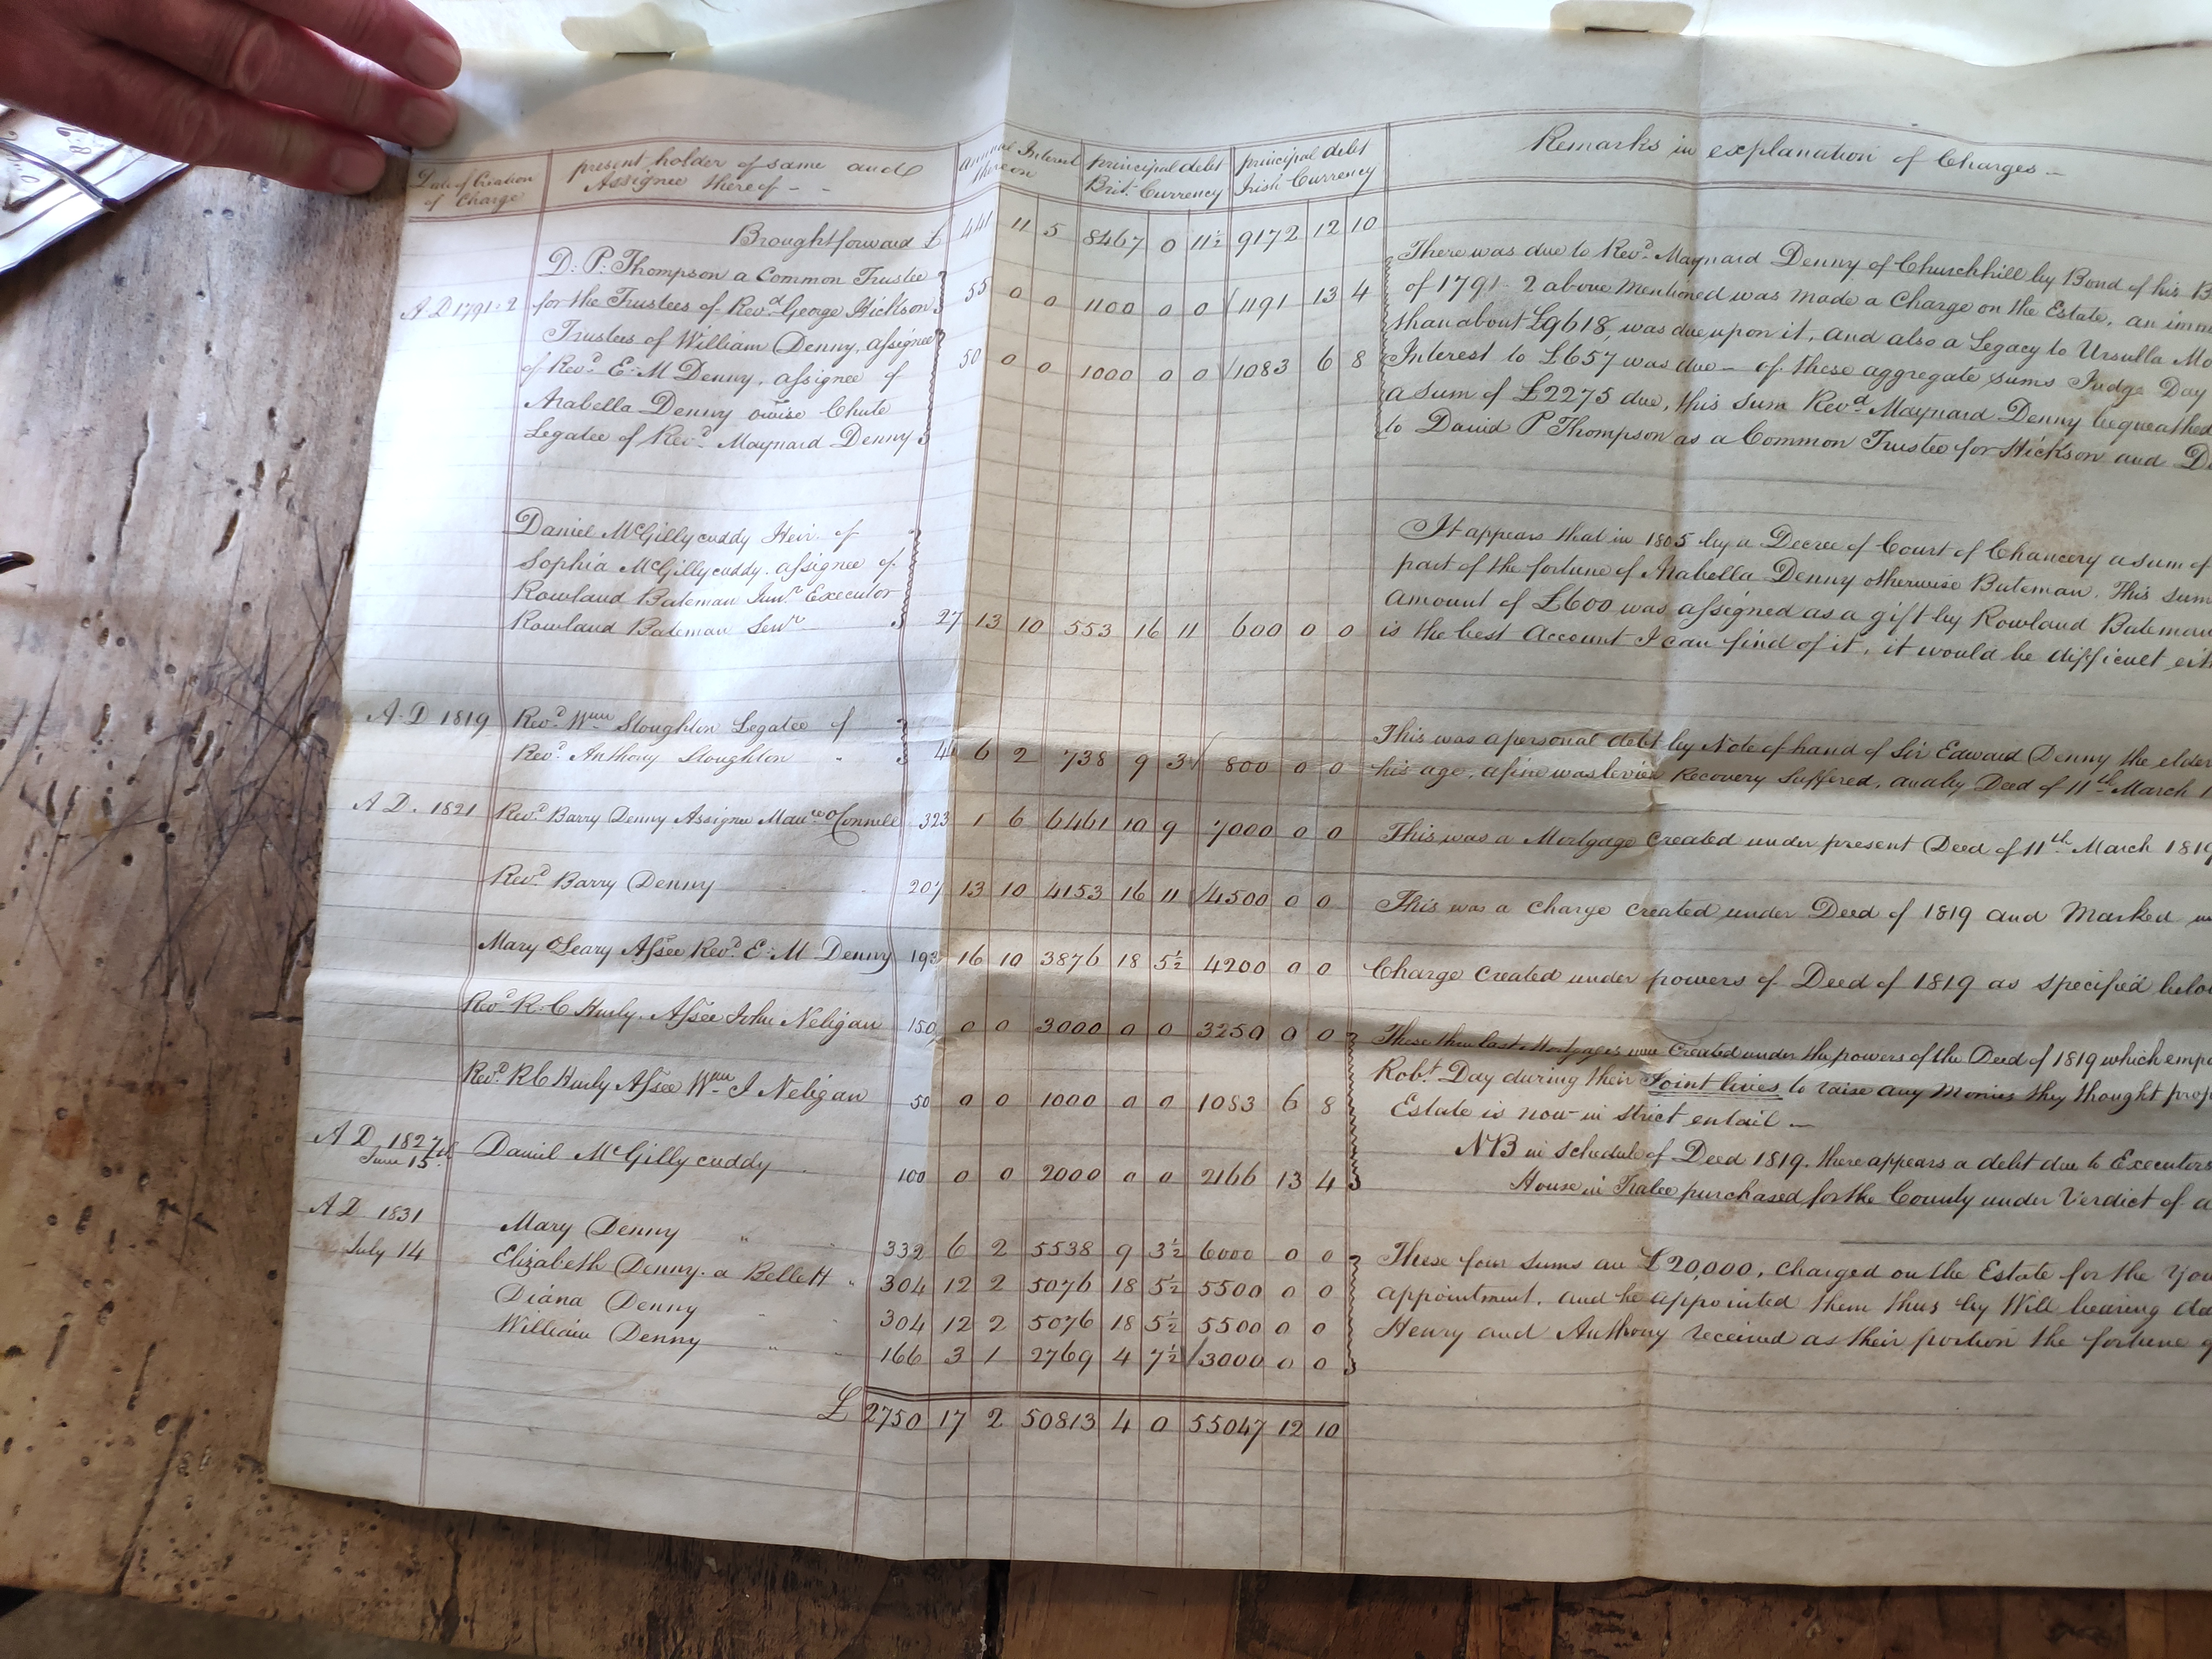 Date of Creation of Charge
present holder of same and Assignee thereof - -
Annual Interest thereon
principal debt Brit: Currency
principal debt Irish Currency
Remarks in explanation of Charges -
Brought forward £ 441 11 5 8467 0 11½ 9172 12 10
D: P: Thompson a Common Trustee
A D 1791-2 for the Trustees of Revd. George Hickson 55 0 0 1100 0 0 1191 13 4
Trustees of William Denny, assignee
of Revd. E: M Denny, assignee of 50 0 0 1000 0 0 1083 6 8
Arabella Denny owise Chute
Legatee of Revd. Maynard Denny
There was due to Revd. Maynard Denny of Churchhill by Bond of his B
of 1791-2 above mentioned was made a Charge on the Estate, an imm
than about £9618, was due upon it, and also a Legacy to Ursulla Mo
Interest to £657 was due - of these aggregate sums Judge Day
a sum of £2275 due, this sum Revd. Maynard Denny bequeathed
to David P Thompson as a Common Trustee for Hickson and De
Daniel McGillycuddy Heir of
Sophia McGillycuddy. assignee of
Rowland Bateman Junr. Executor
Rowland Bateman Senr. 27 13 10 553 16 11 600 0 0
It appears that in 1805 by a Decree of Court of Chancery a sum of
part of the fortune of Arabella Denny otherwise Bateman. This sum
amount of £600 was assigned as a gift by Rowland Bateman
is the best Account I can find of it, it would be difficult eit
A-D 1819 Revd. Wm Stoughton Legatee of
Revd. Anthony Stoughton " 6 2 738 9 3 800 0 0
This was a personal debt by Note of hand of Sir Edward Denny the elder
his age, a fine was levied Recovery Suffered, and by Deed of 11th March 1
A D. 1821 Revd. Barry Denny Assignee Mauce O'Connell 323 1 6 6461 10 9 7000 0 0
This was a Mortgage created under present Deed of 11th March 1819
Revd. Barry Denny 207 13 10 4153 16 11 4500 0 0
This was a Charge created under Deed of 1819 and Marked
Mary O'Leary Assee Revd. E: M Denny 193 16 10 3876 18 5½ 4200 0 0
Charge created under powers of Deed of 1819 as specified below
Revd. R: C Hurly. Assee John Neligan 150 0 0 3000 0 0 3250 0 0
Revd. R C Hurly Assee Wm. J Neligan 50 0 0 1000 0 0 1083 6 8
A D. 1827
June 15 Daniel McGillycuddy 100 0 0 2000 0 0 2166 13 4
These three last Mortgages were created under the powers of the Deed of 1819 which empo
Robt. Day during their Joint lives to raise any Monies they thought prop
Estate is now in strict entail -
NB in schedule of Deed 1819. there appears a debt due to Executors
House in Tralee purchased for the County under Verdict of a
A D 1831
July 14
Mary Denny " 332 6 2 5538 9 3½ 6000 0 0
Elizabeth Denny. a Bellett " 304 12 2 5076 18 5½ 5500 0 0
Diana Denny 304 12 2 5076 18 5½ 5500 0 0
William Denny " 166 3 1 2769 4 7½ 3000 0 0
These four sums are £20,000, charged on the Estate for the You
appointment, and he appointed them thus by Will bearing da
Henry and Anthony received as their portion the fortune
£ 2750 17 2 50813 4 0 55047 12 10